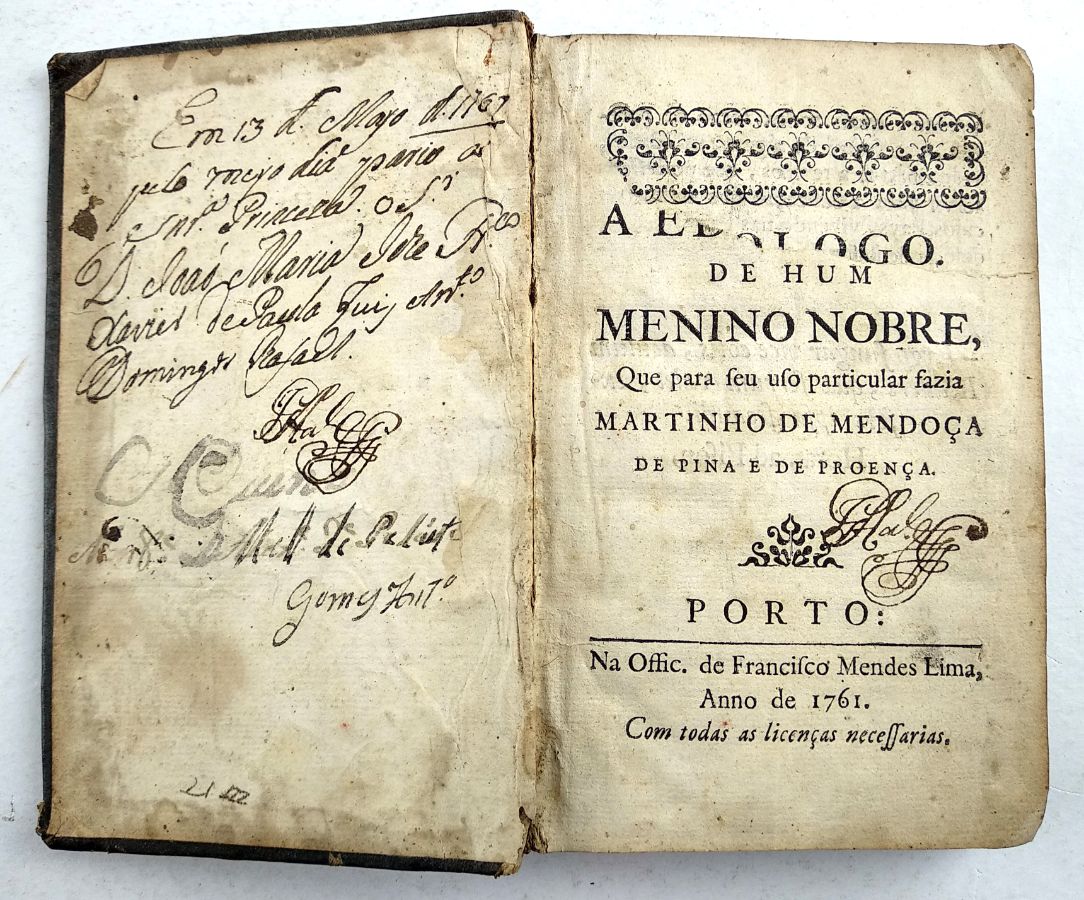 Em 13 d. Mayo d. 1767
pelo meyo dia pario a
Snr.ª Princeza. o S.r
D. Joaõ Maria Joze Fr.co
Xavier de Paula Luis Ant.º
Domingos Rafael.
Gomes Ant.º
A ED OLOGO.
DE HUM
MENINO NOBRE,
Que para ſeu uſo particular fazia
MARTINHO DE MENDOÇA
DE PINA E DE PROENÇA.
PORTO:
Na Offic. de Franciſco Mendes Lima,
Anno de 1761.
Com todas as licenças neceſſarias.